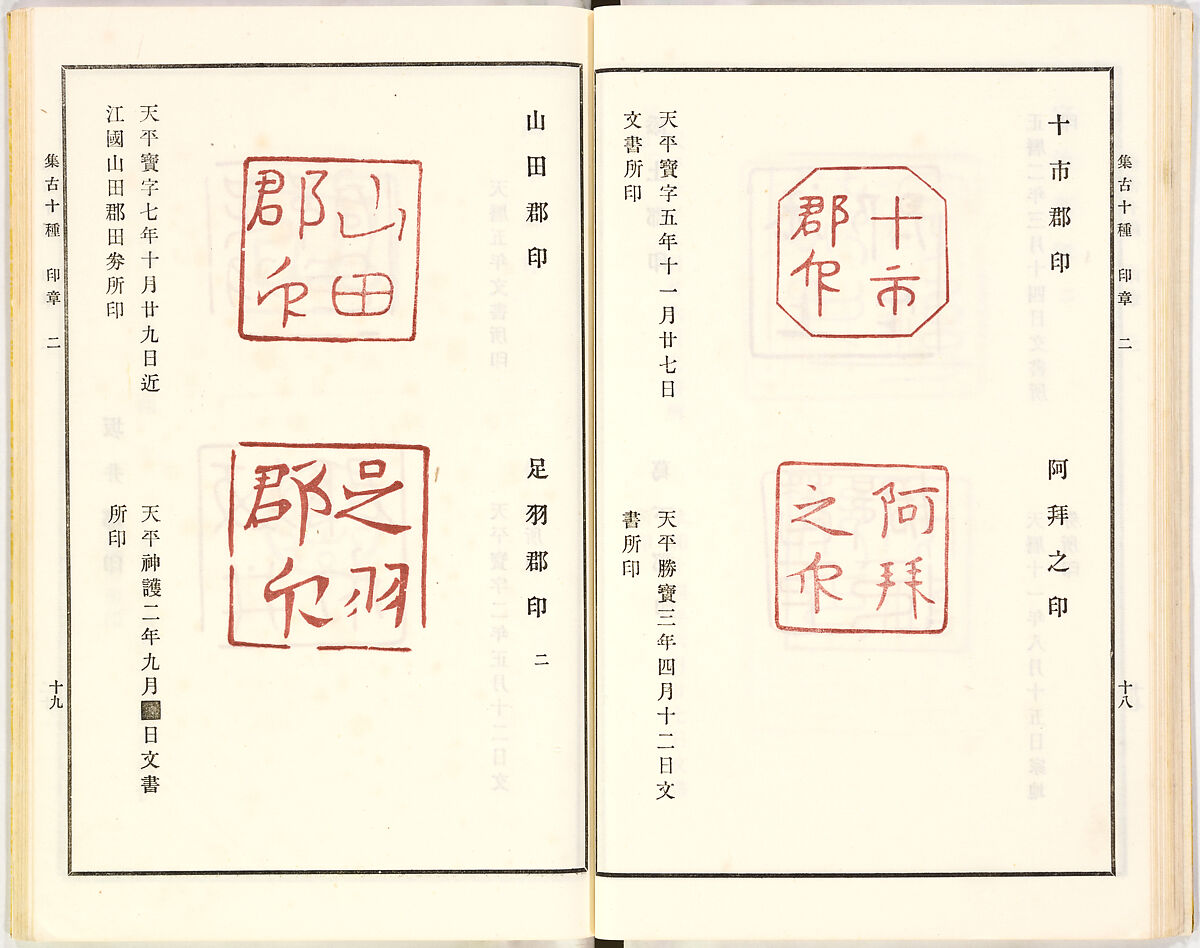 集古十種 印章 二
十八
十市郡印
十市
郡印
天平寶字五年十一月廿七日
文書所印
阿拜之印
阿拜
之印
天平勝寶三年四月十二日文
書所印
山田郡印
山田
郡印
天平寶字七年十月廿九日近
江國山田郡田券所印
足羽郡印 二
足羽
郡印
天平神護二年九月■日文書
所印
集古十種 印章 二
十九